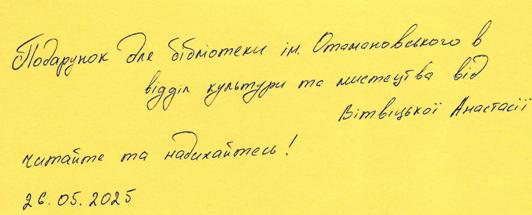 Подарунок для бібліотеки ім. Отамановського в
відділ культури та мистецтва від
Вітвіцької Анастасії
читайте та надихайтесь!
26.05.2025